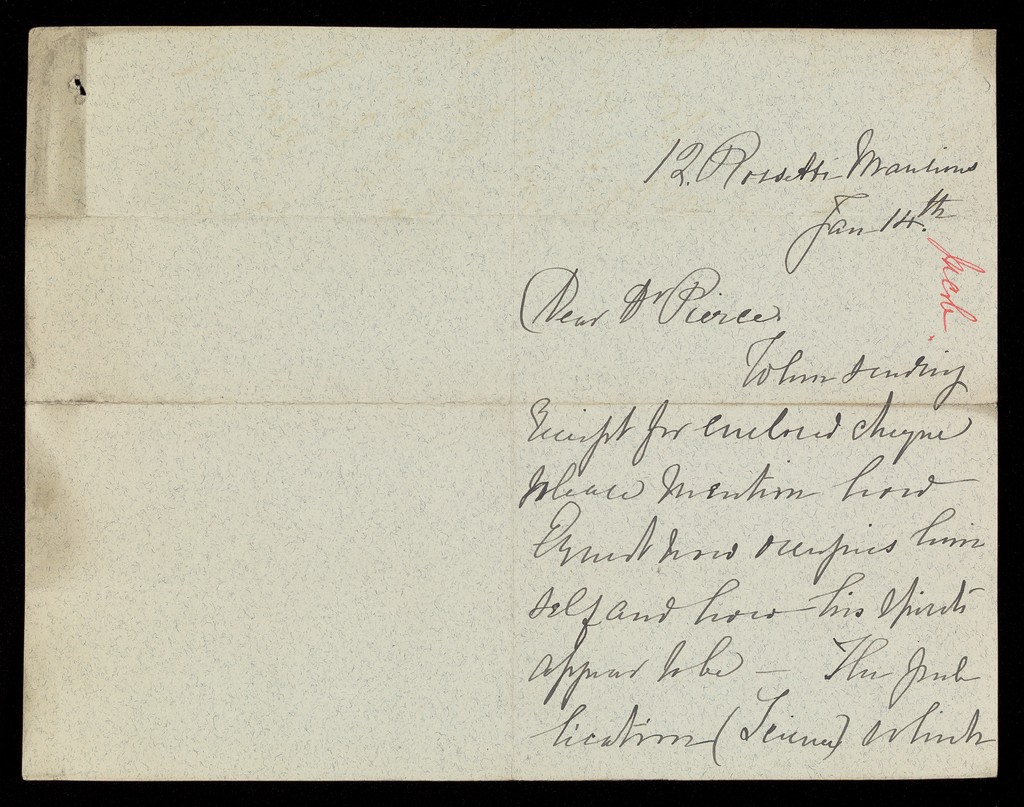 12. Rossetti Mansions
Jan 14.th
Jacob
Dear Dr Pierce
When sending
Receipt for enclosed cheque
please mention how
Ernest now occupies him
self and how his spirits
appear to be — The pub
lication (Science) which